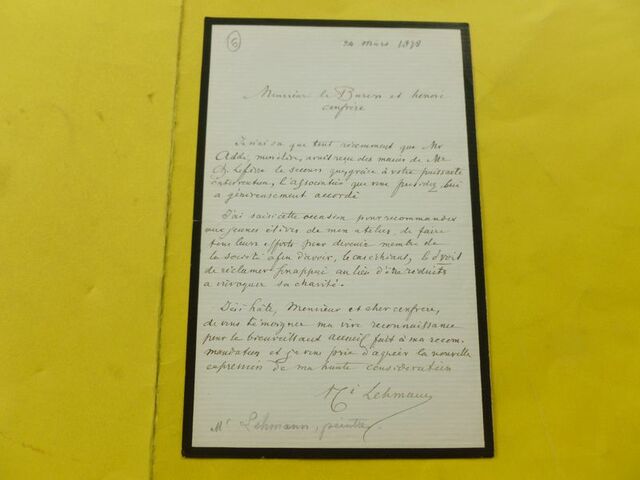 6
24 Mars 1878
Monsieur le Baron et honoré
confrère
Je n'ai su que tout récemment que Mr
avait reçu des mains de Mr
Ch. Lefèvre le secours que, grâce à votre puissante
intervention, l'association que vous présidez lui
a généreusement accordé
J'ai saisi cette occasion pour recommander
aux jeunes élèves de mon atelier, de faire
tous leurs efforts pour devenir membre de
la société afin d'avoir, le cas échéant, le droit
de réclamer son appui au lieu d'être réduits
a invoquer sa charité.
J'ai hâte, Monsieur et cher confrère,
de vous témoigner ma vive reconnaissance
pour le bienveillant accueil fait à ma recom-
mandation et je vous prie d'agréer la nouvelle
expression de ma haute consideration
Lehmann
Mr Lehmann, peintre